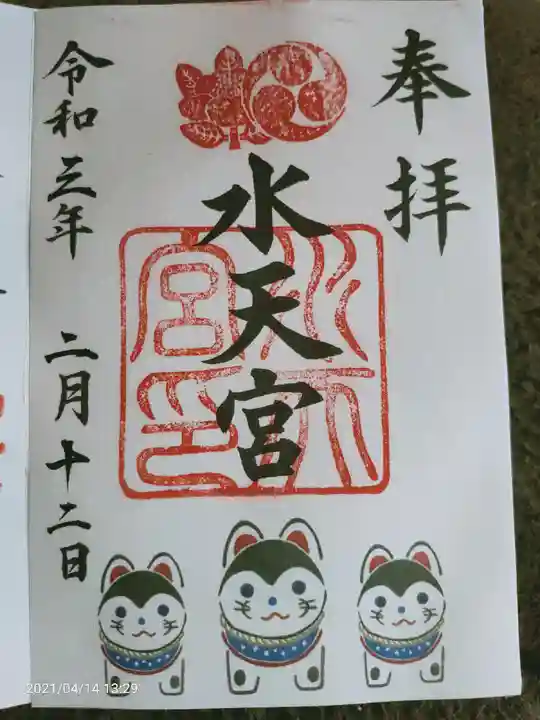 奉拝
水天宮
水天宮印
令和三年 二月十二日
2021/04/14 13:29